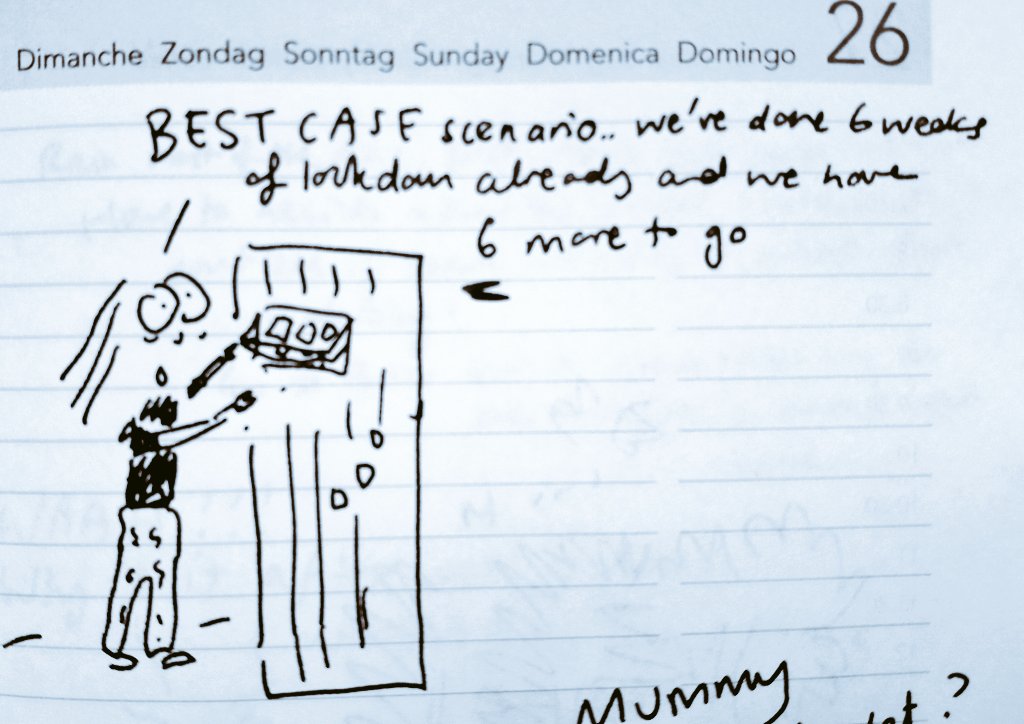 Dimanche Zondag Sonntag Sunday Domenica Domingo 26
BEST CASE scenario.. we're done 6 weeks
of lockdown already and we have
6 more to go
Mummy
?